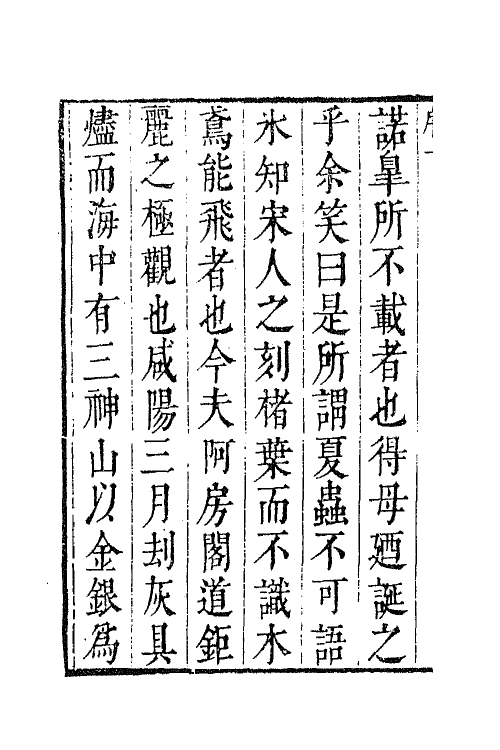 諾臯所不載者也得毋迺誕之
乎余笑曰是所謂夏蟲不可語
氷知宋人之刻楮葉而不識木
鳶能飛者也今夫阿房閣道鉅
麗之極觀也咸陽三月刦灰具
燼而海中有三神山以金銀爲